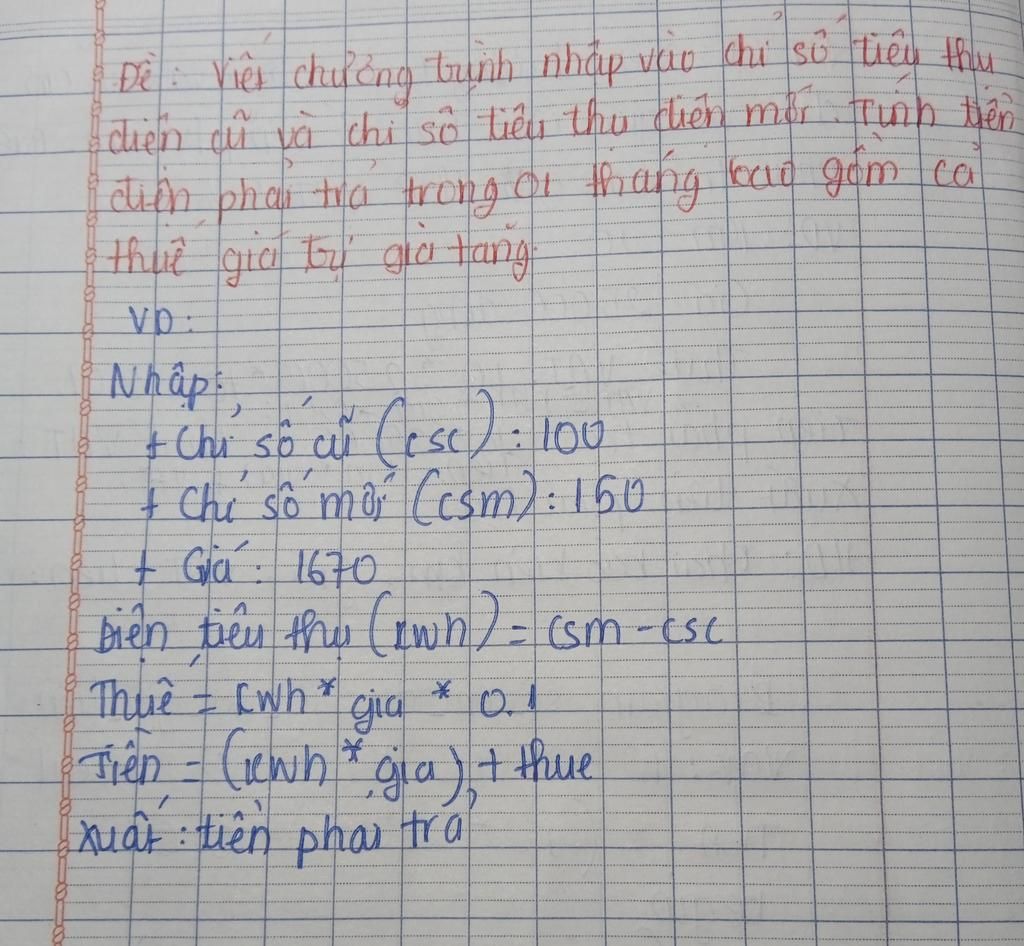 Đề: Viết chương trình nhập vào chỉ số tiêu thụ
điện cũ và chỉ số tiêu thụ điện mới. Tính tiền
điện phải trả trong 01 tháng bao gồm cả
thuế giá trị gia tăng.
VD:
Nhập:
+ Chỉ số cũ (csc): 100
+ Chỉ số mới (csm): 150
+ Giá: 1670
Điện tiêu thụ (kwh) = csm - csc
Thuế = kwh * gia * 0.1
Tiền = (kwh * gia) + thue
Xuất: tiền phải trả